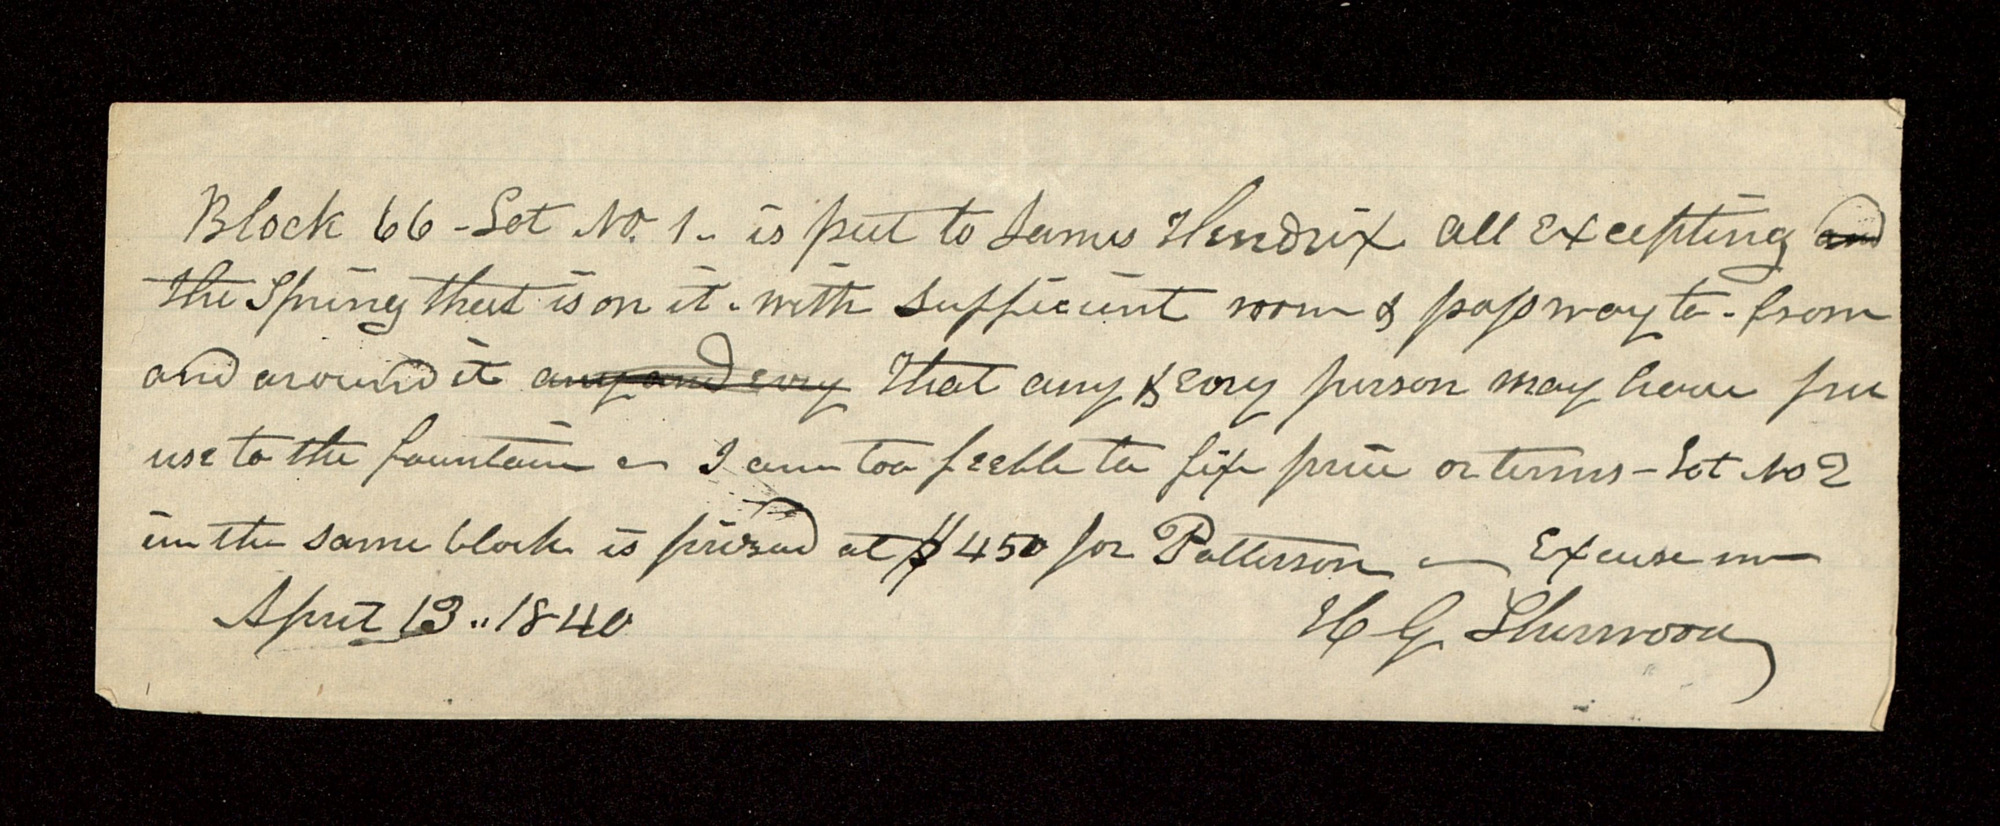 Block 66 - Lot No. 1. is put to James Hendrix all Excepting and
the Spring that is on it. with sufficient room & passway to - from
and around it any and evry That any & evry person may have free
use to the fountain — I am too feeble to fix price or terms - Lot No 2
in the same block is prized at $450 for Patterson — Excuse me
April 13.. 1840
H G Sherwood